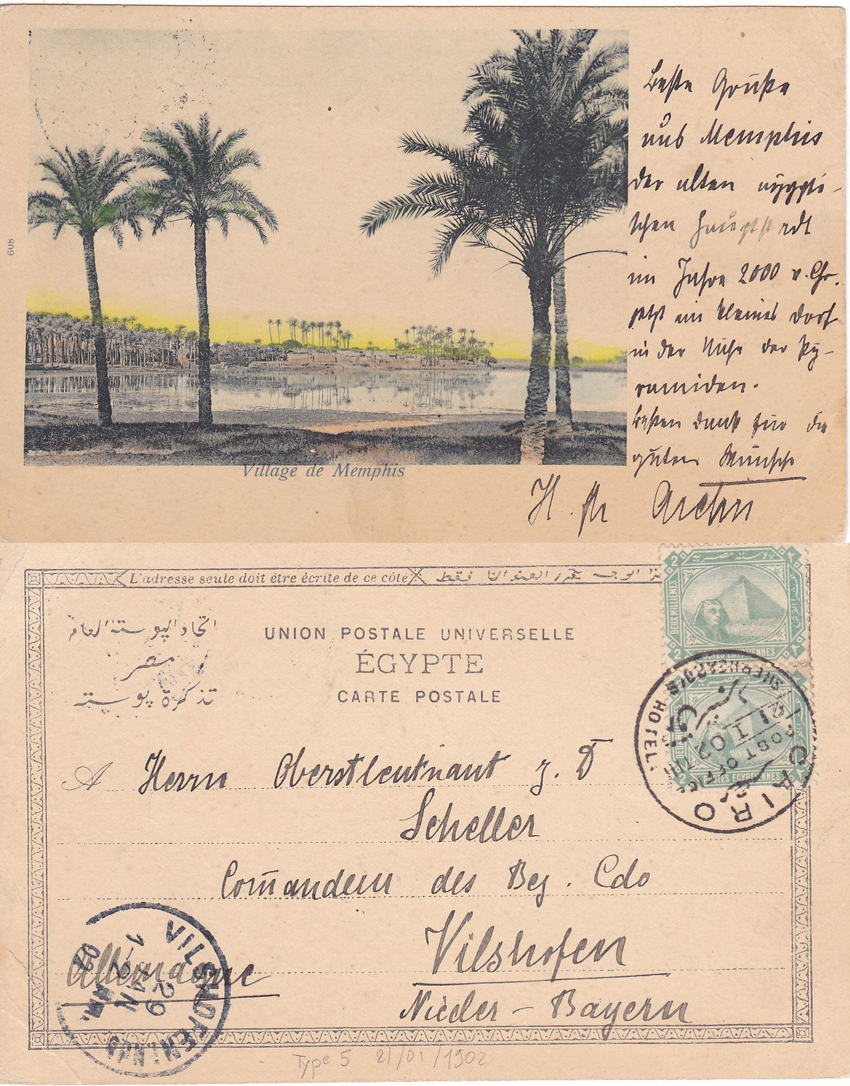 Beste Grüße
aus Memphis
der alten ägypti-
schen Hauptstadt
im Jahre 2000 v. Chr.
jetzt ein kleines Dorf
in der Nähe der Py-
ramiden.
Besten Dank für die
guten Wünsche
608
Village de Memphis
L'adresse seule doit être écrite de ce côté
يحرر العنوان فقط
اتحاد البوستة العام
مصر
تذكرة بوستة
UNION POSTALE UNIVERSELLE
ÉGYPTE
CARTE POSTALE
2 2
DEUX MILLIEMES
POSTES EGYPTIENNES
POSTES EGYPTIENNES
SHEPHEARD'S HOTEL
POST OFFICE
I 02
CAIRO
A Herrn Oberstleutnant z. D
Scheller
Com̄andeur des Bez. Cdo
Vilshofen
Allemagne
Nieder-Bayern
VILSHOFEN
29 JAN
1-2 NM.
02
Type 5 21/01/1902